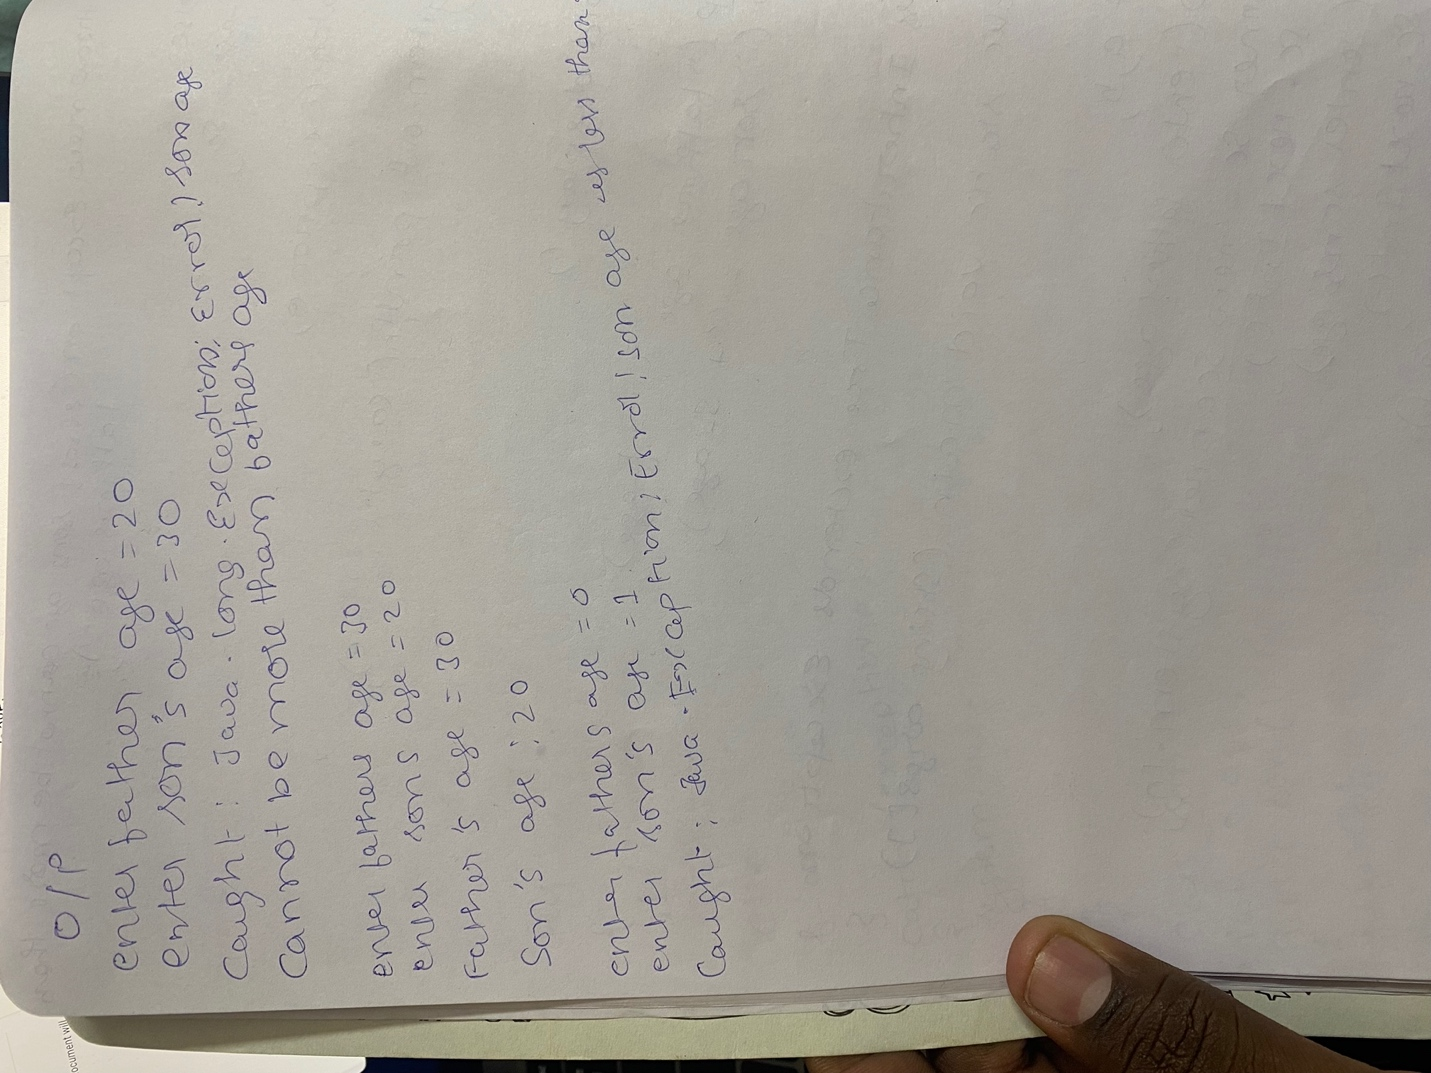 O/P
enter father age = 20
enter son's age = 30
Caught : Java.lang.Exception: Error, son age
cannot be more than fathers age
enter fathers age = 30
enter sons age = 20
Father's age = 30
Son's age : 20
enter fathers age = 0
enter son's age = 1
Caught : Java.Exception: Error, son age is less than
ocument will